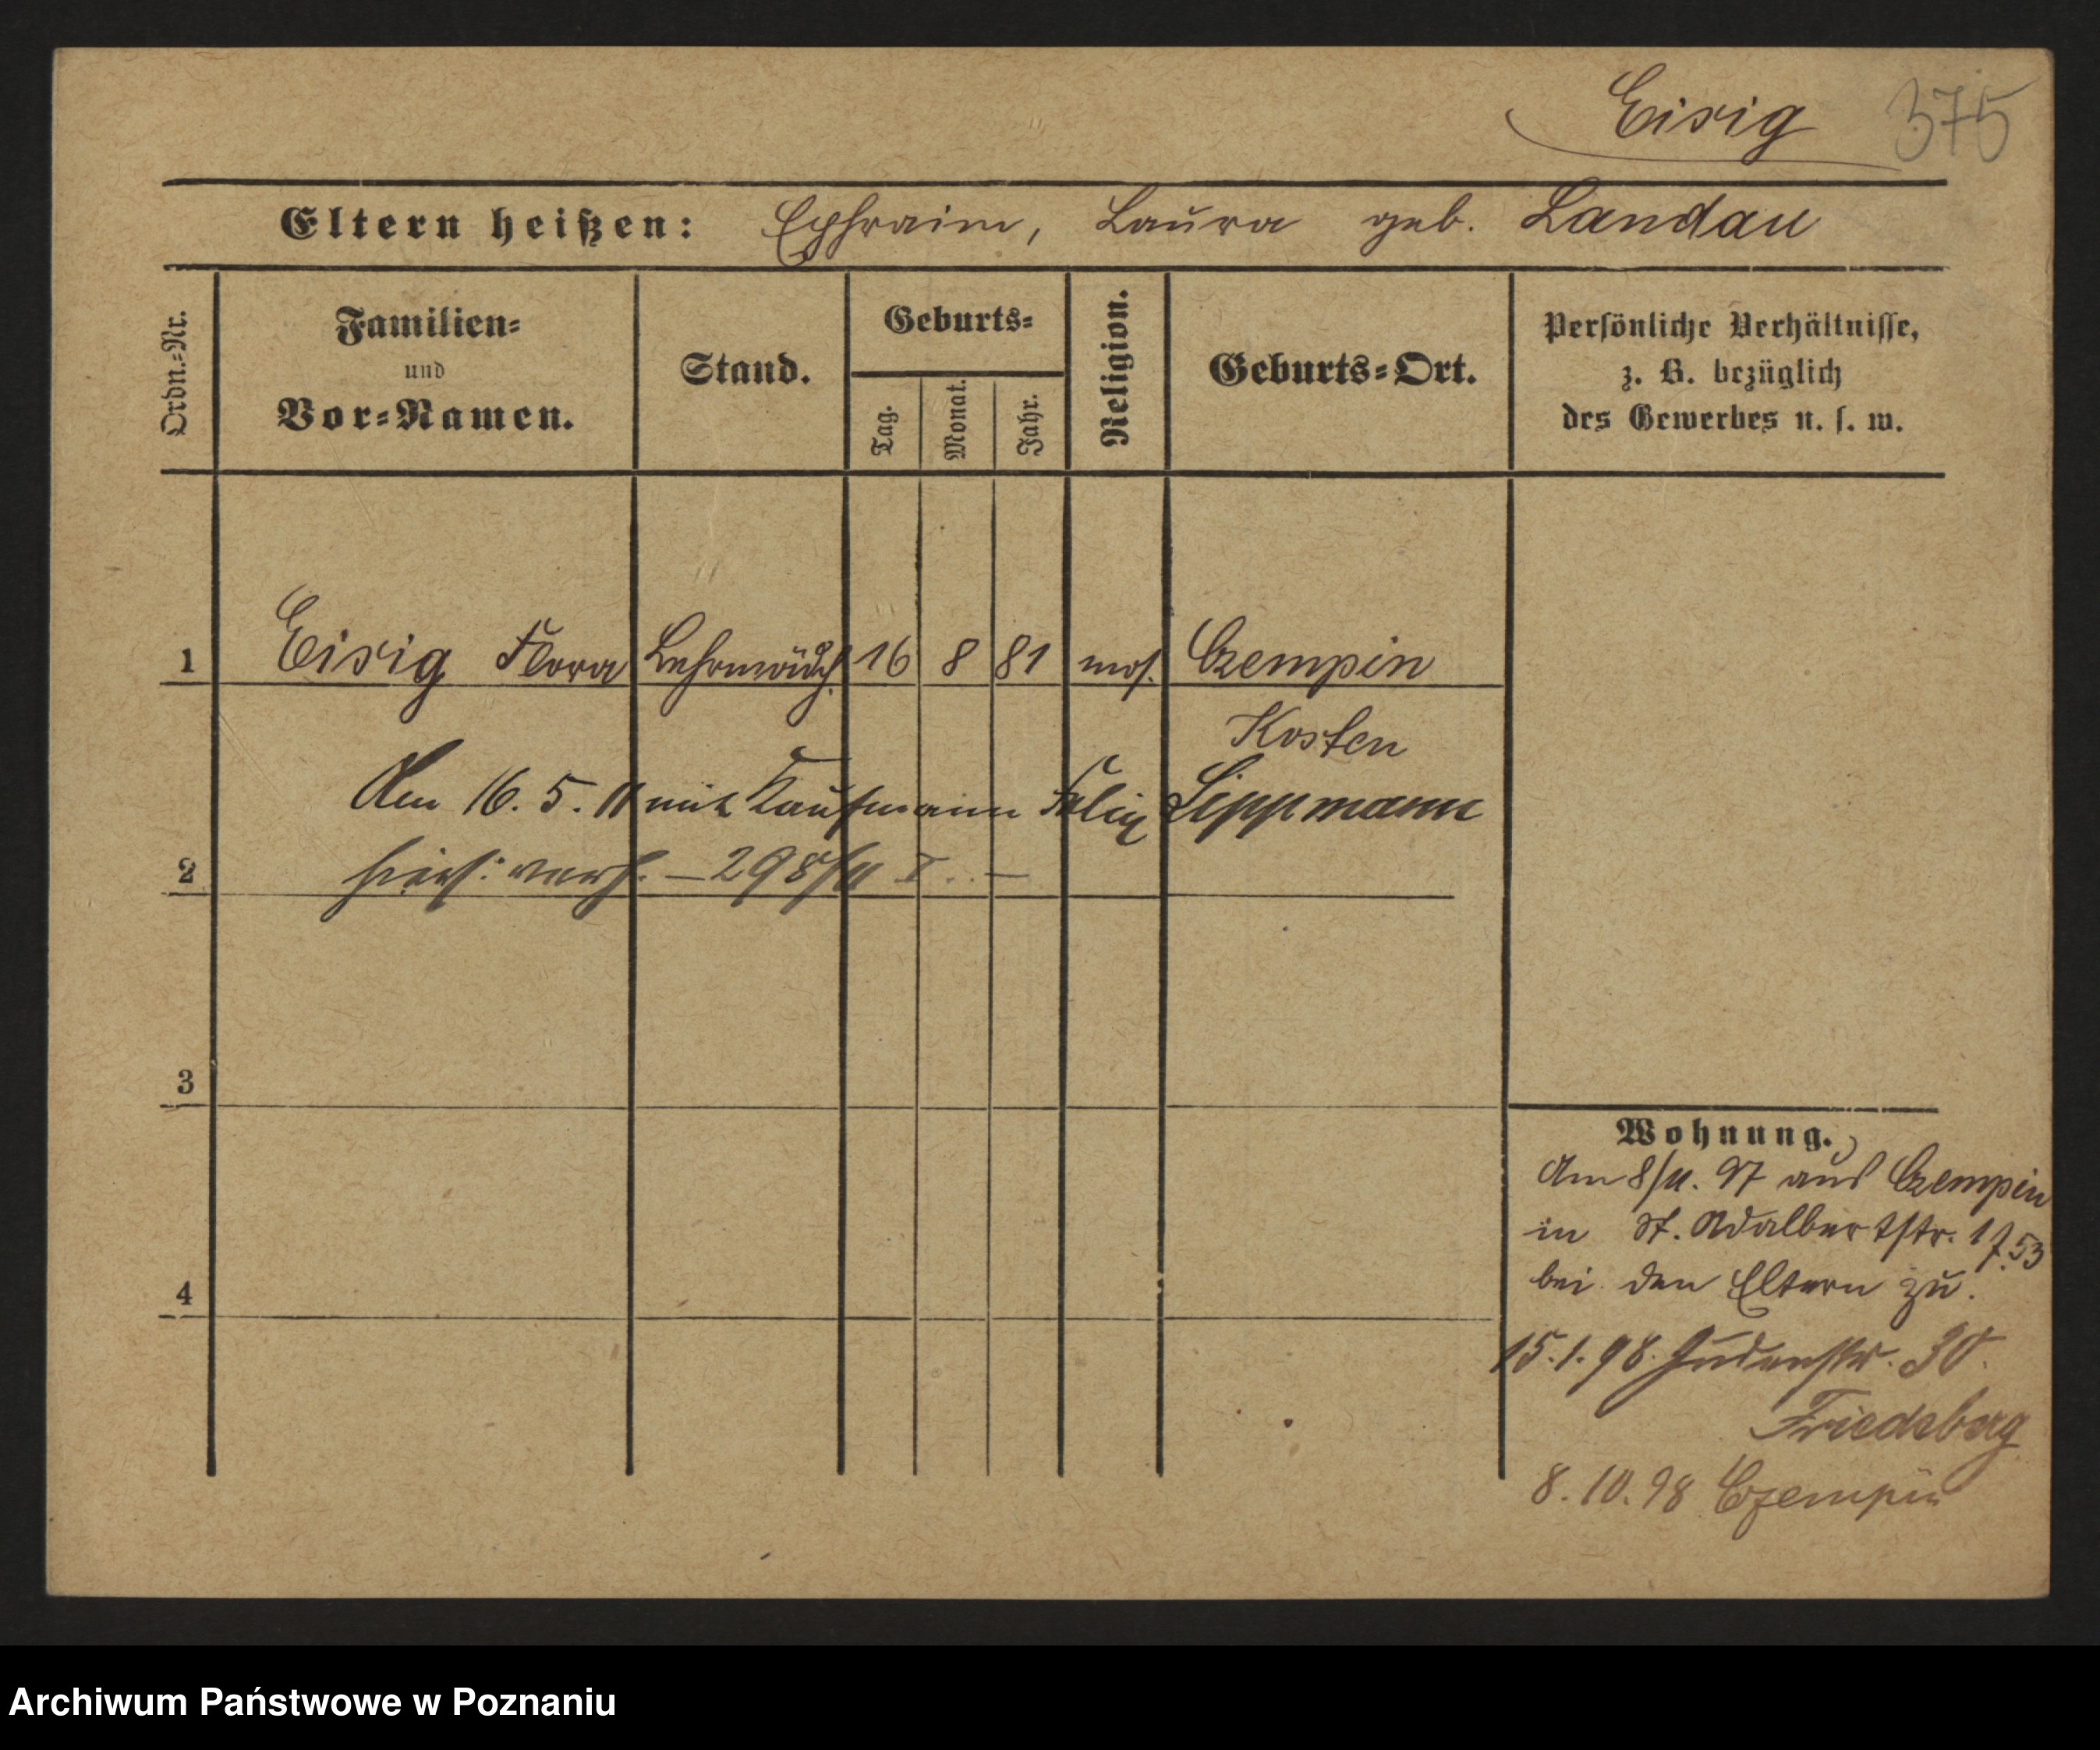 Eisig 375
Eltern heißen: Ephraim, Laura geb. Landau
Ordn.=Nr.
Familien=
und
Vor=Namen.
Stand.
Geburts=
Tag.
Monat.
Jahr.
Religion.
Geburts=Ort.
Persönliche Verhältnisse,
z. B. bezüglich
des Gewerbes u. s. w.
1 Eisig Flora Lehrmädch. 16 8 81 mos. Czempin
Kosten
Am 16. 5. 11 mit Kaufmann Felix Lippmann
2 hier verh. — 298/11 I. —
3
4
Wohnung.
Am 8/11. 97 aus Czempin
in St. Adalbertstr. 17
bei den Eltern zu.
15.1.98. Judenstr. 30.
Friedeberg
8.10.98 Czempin
Archiwum Państwowe w Poznaniu